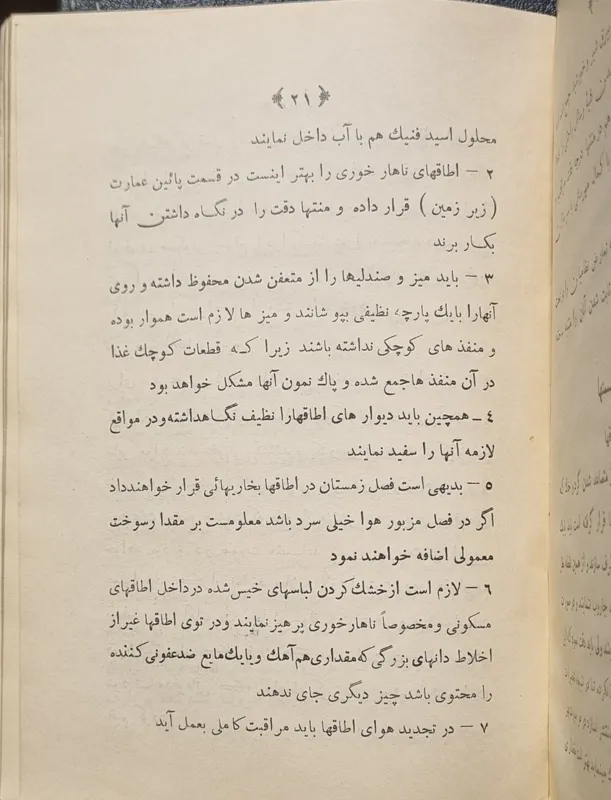 ﴿ ٢١ ﴾
محلول اسید فنیك هم با آب داخل نمایند
٢ – اطاقهای ناهار خوری را بهتر اینست در قسمت پائین عمارت
( زیر زمین ) قرار داده و منتها دقت را در نگاه داشتن آنها
بكار برند
٣ – باید میز و صندلیها را از متعفن شدن محفوظ داشته و روی
آنهارا بایك پارچۀ نظیفی بپو شانند و میز ها لازم است هموار بوده
و منفذ های كوچكی نداشته باشند زیرا كه قطعات كوچك غذا
در آن منفذ هاجمع شده و پاك نمون آنها مشكل خواهد بود
٤ – همچین باید دیوار های اطاقهارا نظیف نگاهداشته ودر مواقع
لازمه آنها را سفید نمایند
٥ – بدیهی است فصل زمستان در اطاقها بخاریهائی قرار خواهندداد
اگر در فصل مزبور هوا خیلی سرد باشد معلومست بر مقدا رسوخت
معمولی اضافه خواهند نمود
٦ – لازم است ازخشك كردن لباسهای خیس شده درداخل اطاقهای
مسكونی ومخصوصاً ناهارخوری پرهیز نمایند ودر توی اطاقها غیراز
اخلاط دانهای بزرگی كه مقداری هم آهك و بایك مایع ضدعفونی كننده
را محتوی باشد چیز دیگری جای ندهند
٧ – در تجدید هوای اطاقها باید مراقبت كاملی بعمل آید